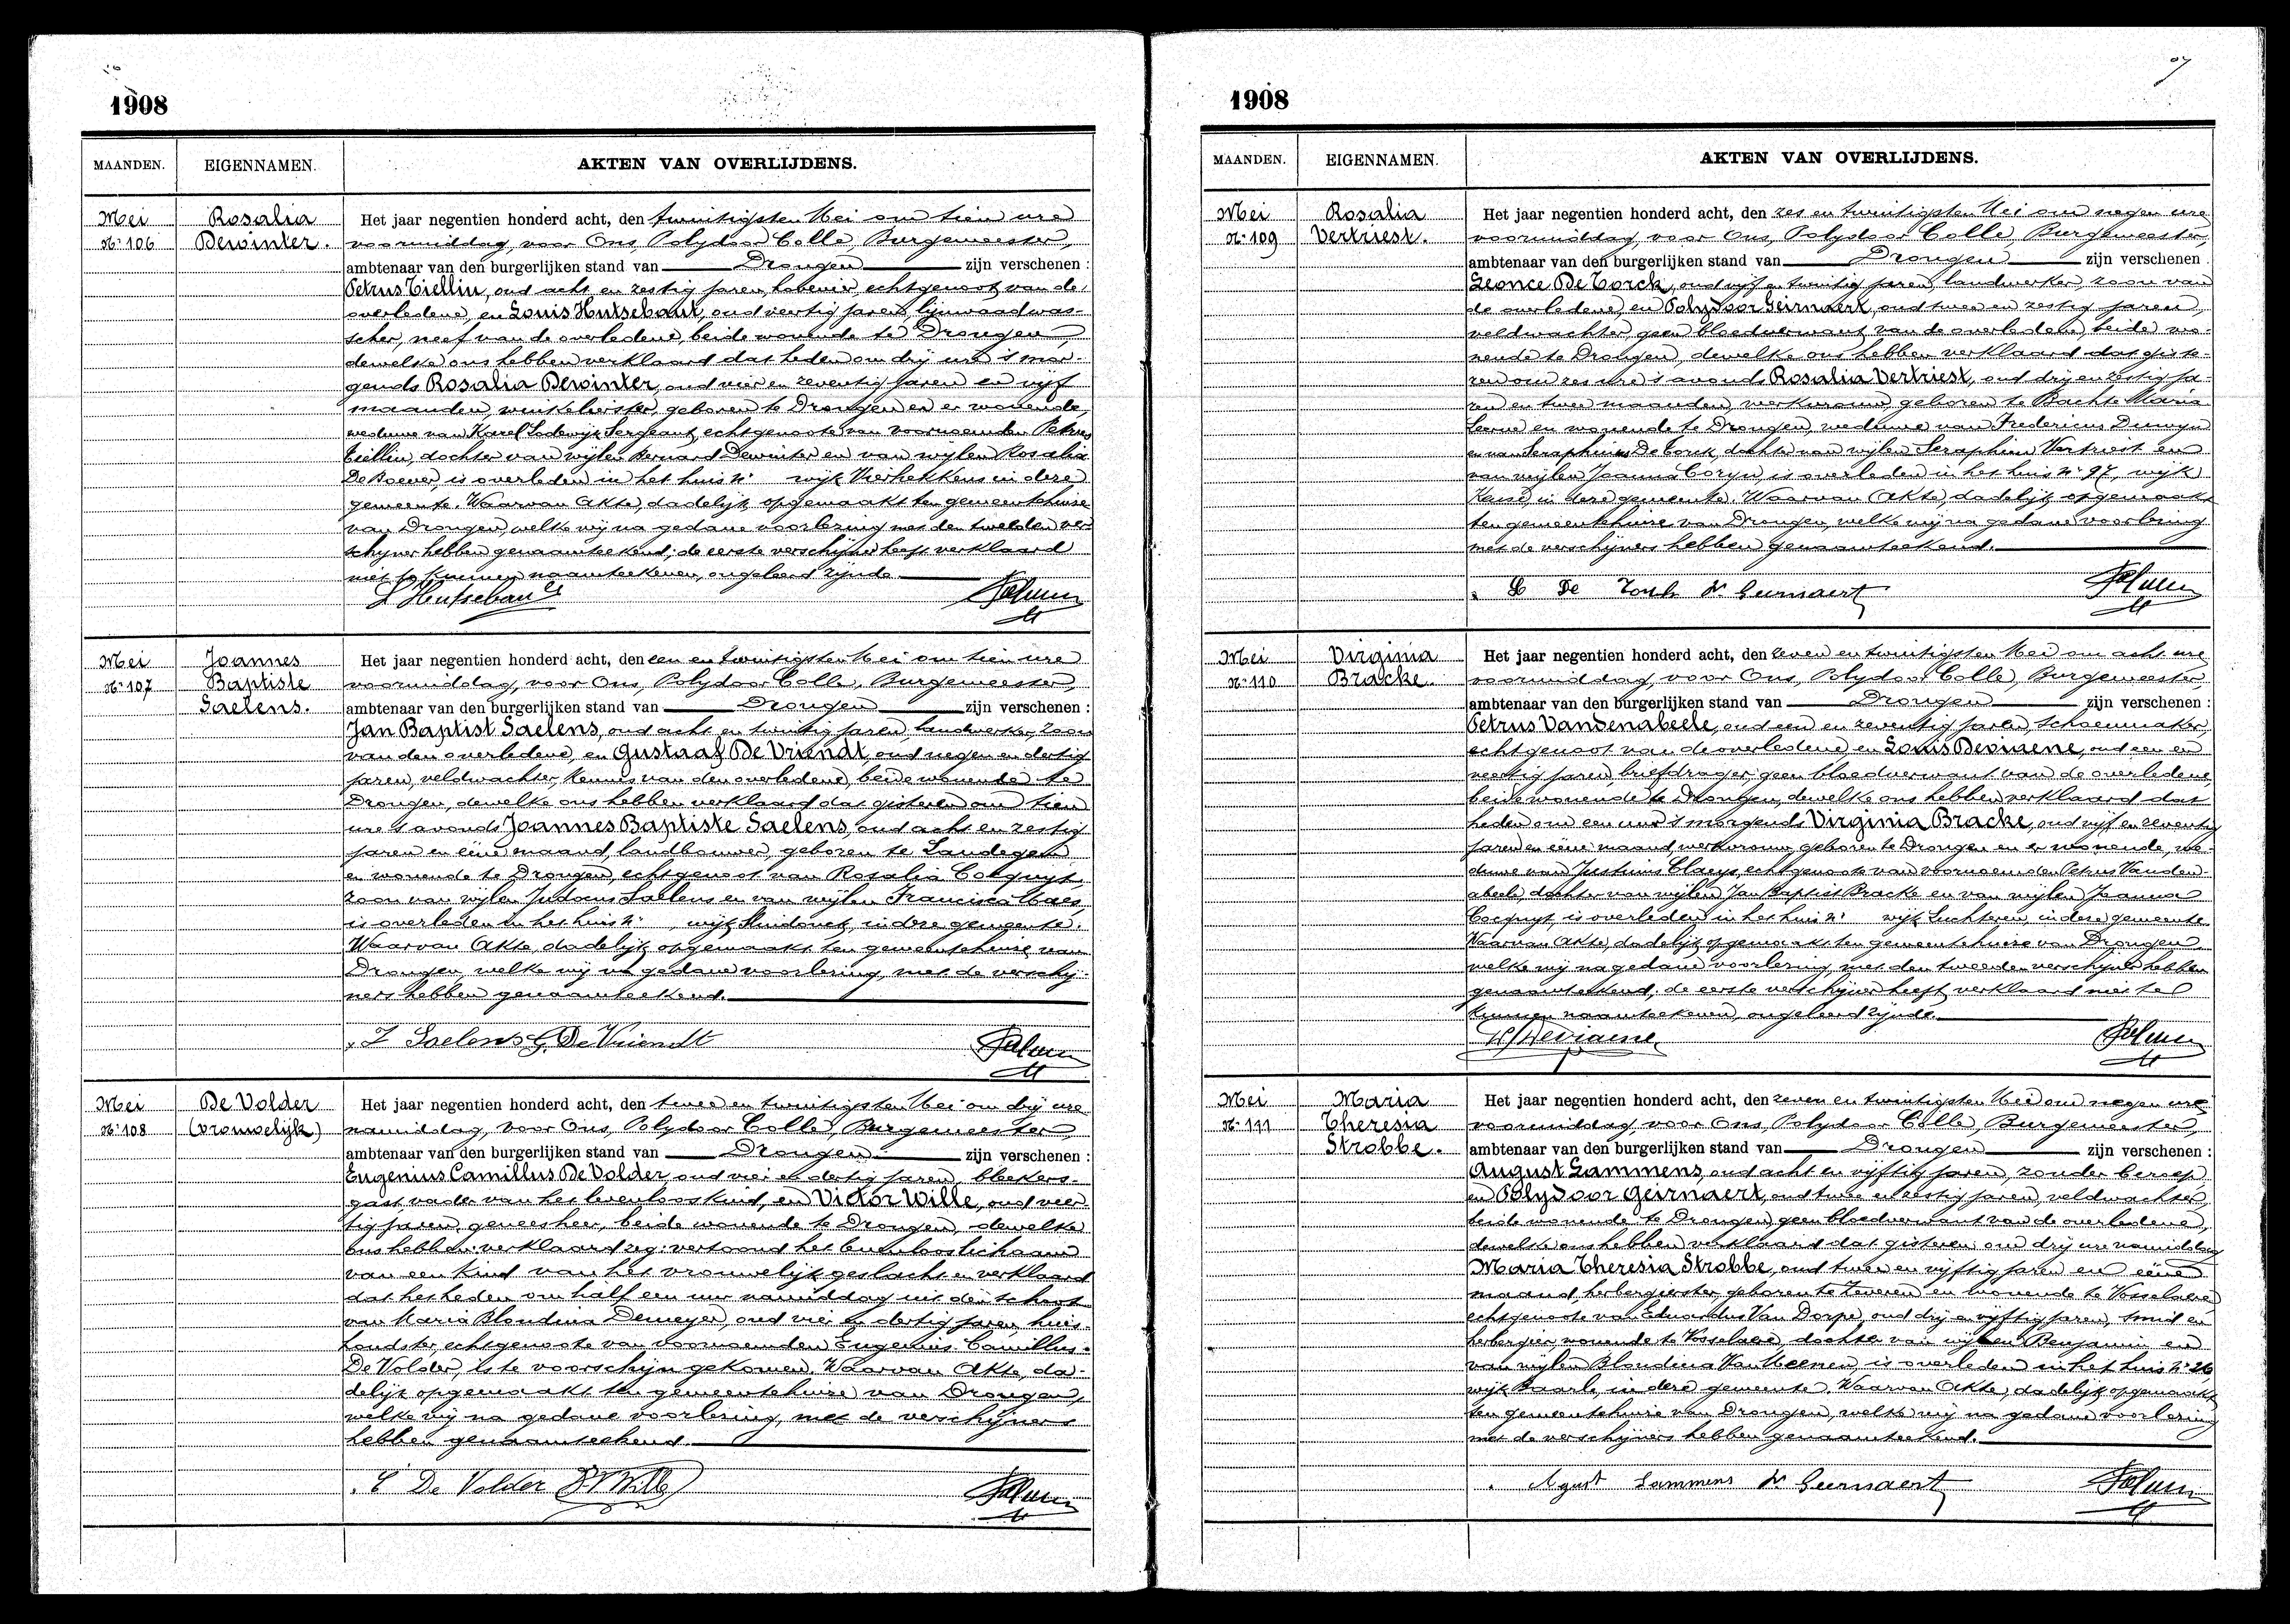 1908
MAANDEN. EIGENNAMEN. AKTEN VAN OVERLIJDENS.
Mei
Nr 106
Rosalia
Dewinter.
Het jaar negentien honderd acht, den twintigsten Mei om tien ure
voormiddag, voor Ons, Polydoor Colle, Burgemeester,
ambtenaar van den burgerlijken stand van Drongen zijn verschenen :
Petrus Tiellin, oud acht en zestig jaren, hovenier, echtgenoot van de
overledene, en Louis Hutsebaut, oud veertig jaren, lijnwaadwas-
scher, neef van de overledene, beide wonende te Drongen,
dewelke ons hebben verklaard dat heden om drij ure 's mor-
gends Rosalia Dewinter, oud vier en zeventig jaren en vijf
maanden, winkelierster, geboren te Drongen en er wonende,
weduwe van Karel Lodewijk Sergeant, echtgenoote van voornoemden Petrus
Tiellin, dochter van wijlen Bernard Dewinter en van wijlen Rosalia
De Poever, is overleden in het huis nr wijk Vierhekkens in deze
gemeente. Waarvan Akte, dadelijk opgemaakt ten gemeentehuize
van Drongen, welke wij na gedane voorlezing met den tweeden ver-
schijner hebben genaamteekend; de eerste verschijner heeft verklaard
niet te kunnen naamteekenen, ongeleerd zijnde.
L Hutsebaut
Mei
Nr 107
Joannes
Baptiste
Saelens.
Het jaar negentien honderd acht, den een en twintigsten Mei om tien ure
voormiddag, voor Ons, Polydoor Colle, Burgemeester,
ambtenaar van den burgerlijken stand van Drongen zijn verschenen :
Jan Baptist Saelens, oud acht en twintig jaren, landwerker, zoon
van den overledene, en Gustaaf De Vriendt, oud negen en dertig
jaren, veldwachter, kennis van den overledene, beide wonende te
Drongen, dewelke ons hebben verklaard dat gisteren om tien
ure 's avonds Joannes Baptiste Saelens, oud acht en zestig
jaren en eene maand, landbouwer, geboren te Landegem
en wonende te Drongen, echtgenoot van Rosalia Cocquyt,
zoon van wijlen Judocus Saelens en van wijlen Francisca Claes
is overleden in het huis nr wijk in deze gemeente.
Waarvan Akte, dadelijk opgemaakt ten gemeentehuize van
Drongen, welke wij na gedane voorlezing, met de verschij-
ners hebben genaamteekend.
J Saelens G. De Vriendt
Mei
Nr 108
De Volder
(vrouwelijk)
Het jaar negentien honderd acht, den twee en twintigsten Mei om drij ure
namiddag, voor Ons, Polydoor Colle, Burgemeester,
ambtenaar van den burgerlijken stand van Drongen zijn verschenen :
Eugenius Camillus De Volder, oud vier en dertig jaren, bleekers-
gast, vader van het levenloos kind, en Victor Wille, oud veer-
tig jaren, geneesheer, beide wonende te Drongen, dewelke
ons hebben verklaard zeg: vertoond het levenloos lichaam
van een kind van het vrouwelijk geslacht en verklaard
dat het heden om half een uur namiddag uit den schoot
van Maria Blondina Demeyer, oud vier en dertig jaren, huis-
houdster, echtgenoote van voornoemden Eugenius Camillus
De Volder, is te voorschijn gekomen. Waarvan Akte, da-
delijk opgemaakt ten gemeentehuize van Drongen,
welke wij na gedane voorlezing, met de verschijners
hebben genaamteekend.
E De Volder Dr Wille
1908
MAANDEN. EIGENNAMEN. AKTEN VAN OVERLIJDENS.
Mei
Nr 109
Rosalia
Vertriest.
Het jaar negentien honderd acht, den zes en twintigsten Mei om negen ure
voormiddag, voor Ons, Polydoor Colle, Burgemeester,
ambtenaar van den burgerlijken stand van Drongen zijn verschenen :
Leonce De Torck, oud vijf en twintig jaren, landwerker, zoon van
de overledene, en Polydoor Geirnaert, oud twee en zestig jaren,
veldwachter, geen bloedverwant van de overledene, beide wo-
nende te Drongen, dewelke ons hebben verklaard dat giste-
ren om zes ure 's avonds Rosalia Vertriest, oud drij en zestig ja-
ren en twee maanden, werkvrouw, geboren te Bachte Maria
Leerne en wonende te Drongen, weduwe van Fredericus
en van Seraphinus De Torck, dochter van wijlen Seraphinus Vertriest en
van wijlen Joanna Coryn, is overleden in het huis nr 97, wijk
in deze gemeente. Waarvan Akte, dadelijk opgemaakt
ten gemeentehuize van Drongen, welke wij na gedane voorlezing
met de verschijners hebben genaamteekend.
L De Torck P. Geirnaert
Mei
Nr 110
Virginia
Bracke.
Het jaar negentien honderd acht, den zeven en twintigsten Mei om acht ure
voormiddag, voor Ons, Polydoor Colle, Burgemeester,
ambtenaar van den burgerlijken stand van Drongen zijn verschenen :
Petrus Vandenabeele, oud een en zeventig jaren, schoenmaker,
echtgenoot van de overledene, en Louis Deviaene, oud een en
veertig jaren, briefdrager, geen bloedverwant van de overledene
beide wonende te Drongen, dewelke ons hebben verklaard dat
heden om een uur 's morgends Virginia Bracke, oud vijf en zeventig
jaren en eene maand, werkvrouw, geboren te Drongen en er wonende, we-
duwe van Justinus Claeys, echtgenoote van voornoemden Petrus Vanden-
abeele, dochter van wijlen Jan Baptist Bracke en van wijlen Joanna
Cocquyt, is overleden in het huis nr wijk Luchteren, in deze gemeente.
Waarvan Akte, dadelijk opgemaakt ten gemeentehuize van Drongen,
welke wij na gedane voorlezing, met den tweeden verschijner hebben
genaamteekend; de eerste verschijner heeft verklaard niet te
kunnen naamteekenen, ongeleerd zijnde.
Deviaene
Mei
Nr 111
Maria
Theresia
Strobbe.
Het jaar negentien honderd acht, den zeven en twintigsten Mei om negen ure
voormiddag, voor Ons, Polydoor Colle, Burgemeester,
ambtenaar van den burgerlijken stand van Drongen zijn verschenen :
August Lammens, oud acht en vijftig jaren, zonder beroep,
en Polydoor Geirnaert, oud twee en zestig jaren, veldwachter,
beide wonende te Drongen, geen bloedverwant van de overledene,
dewelke ons hebben verklaard dat gisteren om drij ure namiddag
Maria Theresia Strobbe, oud twee en vijftig jaren en eene
maand, herbergierster, geboren te Zeveren en wonende te Vosselaere
echtgenoote van Eduardus Van Dorpe, oud drij en vijftig jaren, smid en
herbergier, wonende te Vosselaere, dochter van wijlen Benjamin en
van wijlen Blondina Van Meenen, is overleden in het huis nr 26
wijk Baarle, in deze gemeente. Waarvan Akte, dadelijk opgemaakt
ten gemeentehuize van Drongen, welke wij na gedane voorlezing
met de verschijners hebben genaamteekend.
Agust Lammens P. Geirnaert